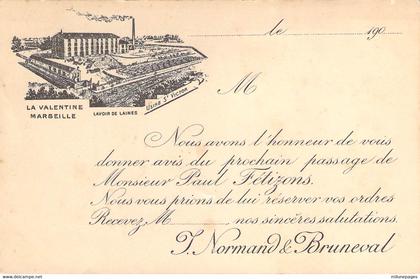 le 190
LA VALENTINE
MARSEILLE
LAVOIR DE LAINES
USINE St VICTOR
M
Nous avons l'honneur de vous
donner avis du prochain passage de
Monsieur Paul Félizons.
Nous vous prions de lui réserver vos ordres
Recevez M nos sincères salutations.
J. Normand & Bruneval